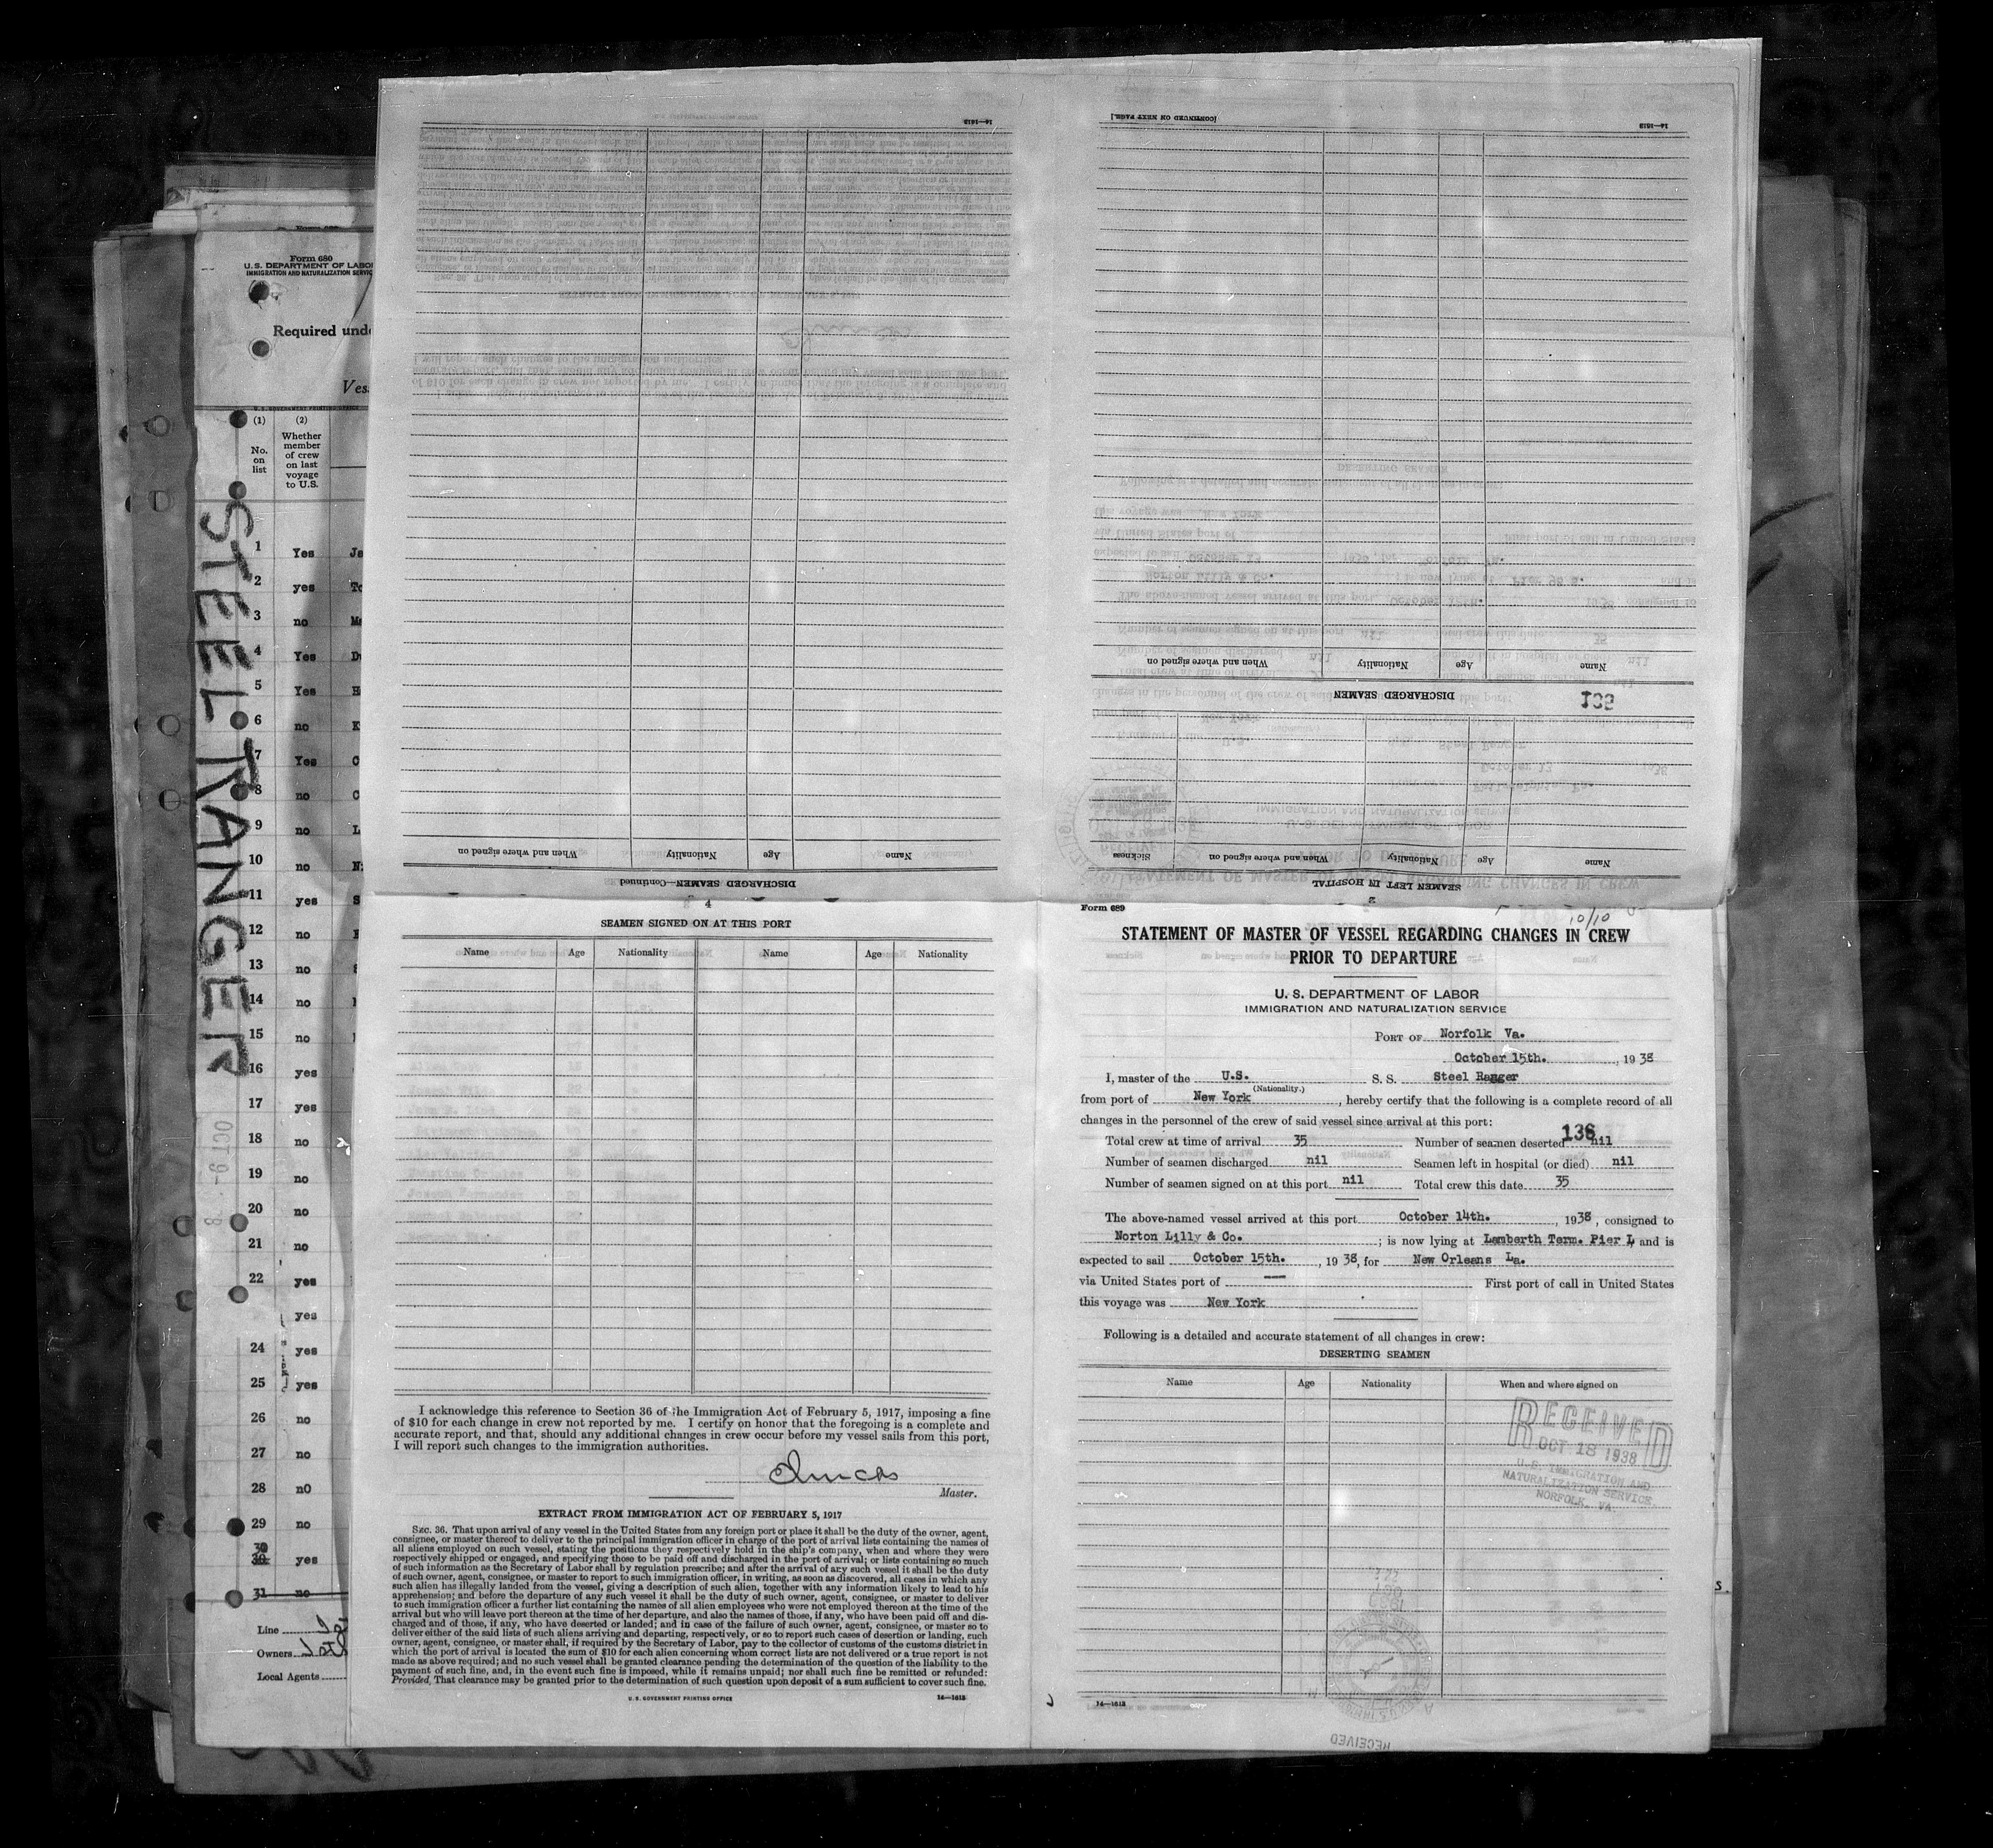 14—1613
[CONTINUED ON NEXT PAGE.]
14—1613
Name
Age
Nationality
When and where signed on
DISCHARGED SEAMEN
Name
Age
Nationality
When and where signed on
Sickness
SEAMEN LEFT IN HOSPITAL
2
Name
Age
Nationality
When and where signed on
DISCHARGED SEAMEN—Continued
Form 680
U.S. DEPARTMENT OF LABO
IMMIGRATION AND NATURALIZATION SERVIC
Required unde
Ves
U.S. GOVERNMENT PRINTING OFFICE
(1) (2)
No. on list
Whether member of crew on last voyage to U.S.
STEEL RANGER
OCT 9-
1 Yes Ja
2 yes To
3 no Ma
4 Yes D
5 Yes H
6 no K
7 Yes C
8 no C
9 no L
10 no N
11 yes S
12 no
13 no
14 no
15 no
16 yes
17 yes
18 no
19 no
20 no
21 no
22 yes
yes
24 yes
25 yes
26 no
27 no
28 nO
29 no
30 yes
31 no
Line
Owners
Local Agents
4
SEAMEN SIGNED ON AT THIS PORT
Name Age Nationality Name Age Nationality
I acknowledge this reference to Section 36 of the Immigration Act of February 5, 1917, imposing a fine
of $10 for each change in crew not reported by me. I certify on honor that the foregoing is a complete and
accurate report, and that, should any additional changes in crew occur before my vessel sails from this port,
I will report such changes to the immigration authorities.
Master.
EXTRACT FROM IMMIGRATION ACT OF FEBRUARY 5, 1917
SEC. 36. That upon arrival of any vessel in the United States from any foreign port or place it shall be the duty of the owner, agent,
consignee, or master thereof to deliver to the principal immigration officer in charge of the port of arrival lists containing the names of
all aliens employed on such vessel, stating the positions they respectively hold in the ship's company, when and where they were
respectively shipped or engaged, and specifying those to be paid off and discharged in the port of arrival; or lists containing so much
of such information as the Secretary of Labor shall by regulation prescribe; and after the arrival of any such vessel it shall be the duty
of such owner, agent, consignee, or master to report to such immigration officer, in writing, as soon as discovered, all cases in which any
such alien has illegally landed from the vessel, giving a description of such alien, together with any information likely to lead to his
apprehension; and before the departure of any such vessel it shall be the duty of such owner, agent, consignee, or master to deliver
to such immigration officer a further list containing the names of all alien employees who were not employed thereon at the time of the
arrival but who will leave port thereon at the time of her departure, and also the names of those, if any, who have been paid off and dis-
charged and of those, if any, who have deserted or landed; and in case of the failure of such owner, agent, consignee, or master so to
deliver either of the said lists of such aliens arriving and departing, respectively, or so to report such cases of desertion or landing, such
owner, agent, consignee, or master shall, if required by the Secretary of Labor, pay to the collector of customs of the customs district in
which the port of arrival is located the sum of $10 for each alien concerning whom correct lists are not delivered or a true report is not
made as above required; and no such vessel shall be granted clearance pending the determination of the question of the liability to the
payment of such fine, and, in the event such fine is imposed, while it remains unpaid; nor shall such fine be remitted or refunded:
Provided, That clearance may be granted prior to the determination of such question upon deposit of a sum sufficient to cover such fine.
U. S. GOVERNMENT PRINTING OFFICE 14—1613
Form 689
10/10
STATEMENT OF MASTER OF VESSEL REGARDING CHANGES IN CREW
PRIOR TO DEPARTURE
U. S. DEPARTMENT OF LABOR
IMMIGRATION AND NATURALIZATION SERVICE
PORT OF Norfolk Va.
October 15th. , 1938
I, master of the U.S. S. S. Steel Ranger
(Nationality.)
from port of New York , hereby certify that the following is a complete record of all
changes in the personnel of the crew of said vessel since arrival at this port:
136
Total crew at time of arrival 35 Number of seamen deserted nil
Number of seamen discharged nil Seamen left in hospital (or died) nil
Number of seamen signed on at this port nil Total crew this date 35
The above-named vessel arrived at this port October 14th. , 1938 , consigned to
Norton Lilly & Co. ; is now lying at Lamberth Term. Pier L and is
expected to sail October 15th. , 1938, for New Orleans La.
via United States port of — First port of call in United States
this voyage was New York
Following is a detailed and accurate statement of all changes in crew:
DESERTING SEAMEN
Name Age Nationality When and where signed on
RECEIVED
OCT 18 1938
U.S. IMMIGRATION AND
NATURALIZATION SERVICE,
NORFOLK, VA
14—1613
RECEIVED